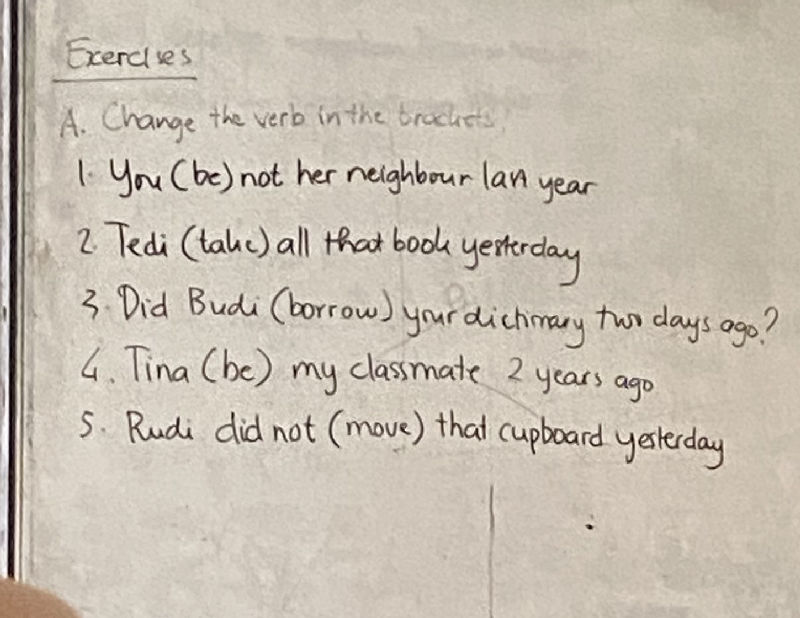 Exercises
A. Change the verb in the brackets.
1. You (be) not her neighbour last year
2. Tedi (take) all that book yesterday
3. Did Budi (borrow) your dictionary two days ago?
4. Tina (be) my classmate 2 years ago
5. Rudi did not (move) that cupboard yesterday